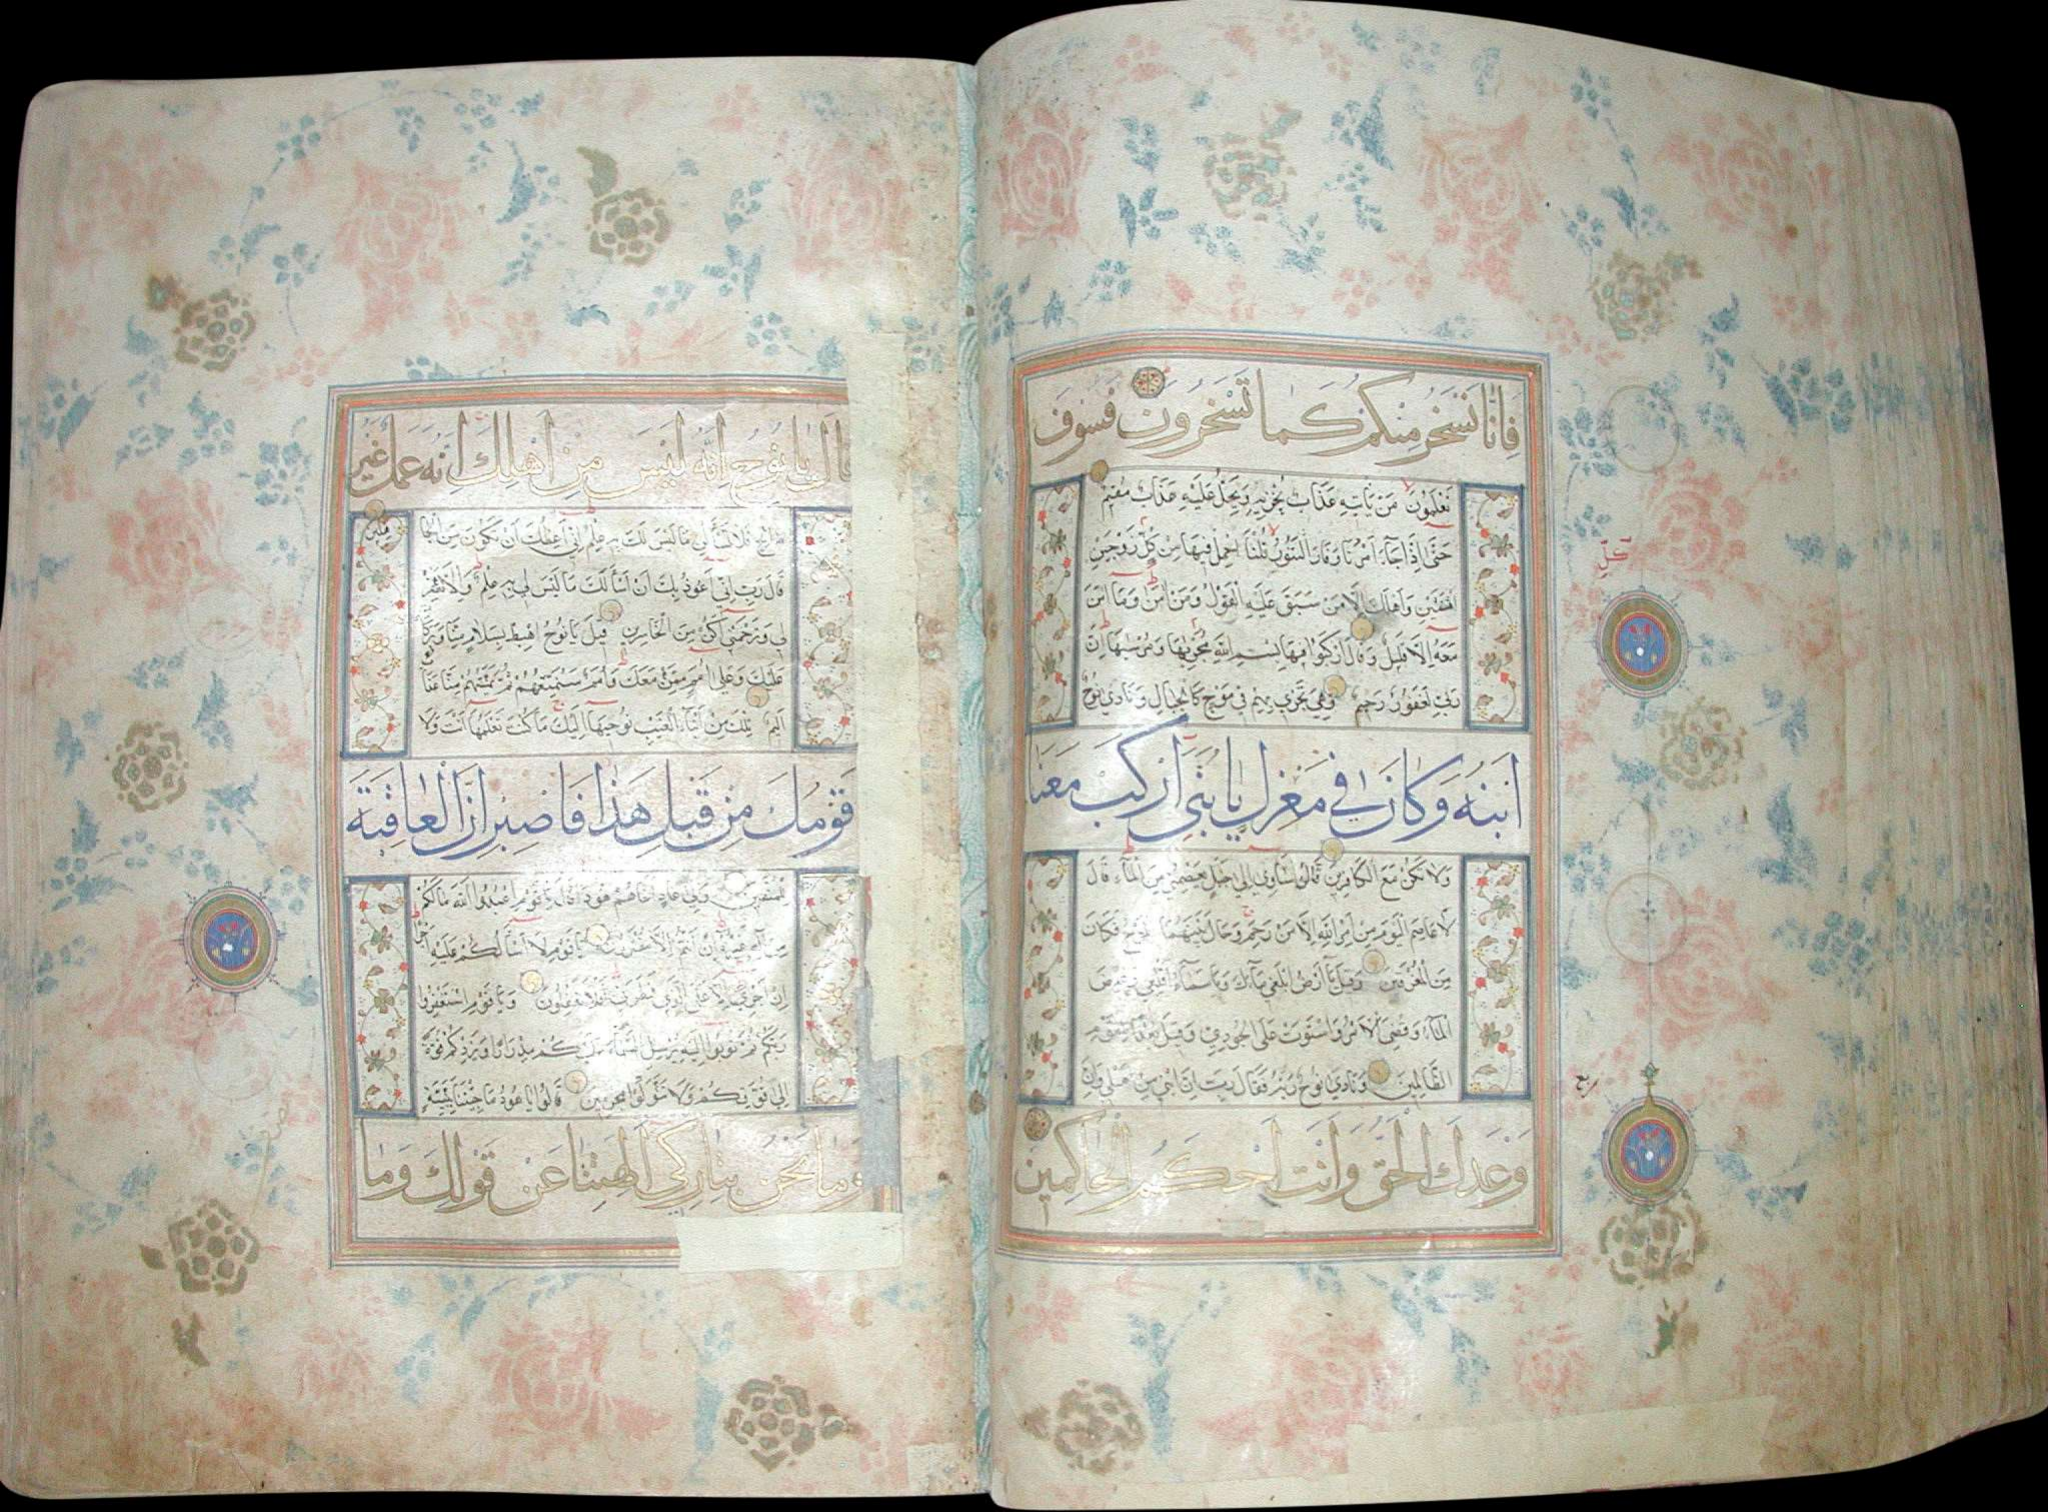 فَانَّا نَسْخَرُ مِنكُمْ كَمَا تَسْخَرُونَ فَسَوْفَ
تَعْلَمُونَ مَنْ يَاتِيهِ عَذَابٌ يُخْزِيهِ وَيَحِلُّ عَلَيْهِ عَذَابٌ مُقِيمٌ
حَتَّى اِذَا جَآءَ اَمْرُنَا وَفَارَ التَّنُّورُ قُلْنَا احْمِلْ فِيهَا مِنْ كُلٍّ زَوْجَيْنِ
اثْنَيْنِ وَاَهْلَكَ اِلَّا مَنْ سَبَقَ عَلَيْهِ الْقَوْلُ وَمَنْ اٰمَنَ وَمَا اٰمَنَ
مَعَهُ اِلَّا قَلِيلٌ وَقَالَ ارْكَبُوا فِيهَا بِسْمِ اللّٰهِ مَجْرٰيهَا وَمُرْسٰيهَا اِنَّ
رَبِّي لَغَفُورٌ رَحِيمٌ وَهِيَ تَجْرِي بِهِمْ فِي مَوْجٍ كَالْجِبَالِ وَنَادٰي نُوحٌ
ابْنَهُ وَكَانَ فِي مَعْزِلٍ يَا بُنَيَّ ارْكَبْ مَعَنَا
وَلَا تَكُنْ مَعَ الْكَافِرِينَ قَالَ سَاٰوِي اِلٰي جَبَلٍ يَعْصِمُنِي مِنَ الْمَآءِ قَالَ
لَا عَاصِمَ الْيَوْمَ مِنْ اَمْرِ اللّٰهِ اِلَّا مَنْ رَحِمَ وَحَالَ بَيْنَهُمَا الْمَوْجُ فَكَانَ
مِنَ الْمُغْرَقِينَ وَقِيلَ يَا اَرْضُ ابْلَعِي مَآءَكِ وَيَا سَمَآءُ اَقْلِعِي وَغِيضَ
الْمَآءُ وَقُضِيَ الْاَمْرُ وَاسْتَوَتْ عَلَي الْجُودِيِّ وَقِيلَ بُعْدًا لِلْقَوْمِ
الظَّالِمِينَ وَنَادٰي نُوحٌ رَبَّهُ فَقَالَ رَبِّ اِنَّ ابْنِي مِنْ اَهْلِي وَاِنَّ
وَعْدَكَ الْحَقُّ وَاَنْتَ اَحْكَمُ الْحَاكِمِينَ
قَالَ يَا نُوحُ اِنَّهُ لَيْسَ مِنْ اَهْلِكَ اِنَّهُ عَمَلٌ غَيْرُ
صَالِحٍ فَلَا تَسْأَلْنِي مَا لَيْسَ لَكَ بِهِ عِلْمٌ اِنِّي اَعِظُكَ اَنْ تَكُونَ مِنَ الْجَاهِلِينَ
قَالَ رَبِّ اِنِّي اَعُوذُ بِكَ اَنْ اَسْأَلَكَ مَا لَيْسَ لِي بِهِ عِلْمٌ وَاِلَّا تَغْفِرْ
لِي وَتَرْحَمْنِي اَكُنْ مِنَ الْخَاسِرِينَ قِيلَ يَا نُوحُ اهْبِطْ بِسَلَامٍ مِنَّا وَبَرَكَاتٍ
عَلَيْكَ وَعَلٰي اُمَمٍ مِمَّنْ مَعَكَ وَاُمَمٌ سَنُمَتِّعُهُمْ ثُمَّ يَمَسُّهُمْ مِنَّا عَذَابٌ
اَلِيمٌ تِلْكَ مِنْ اَنْبَآءِ الْغَيْبِ نُوحِيهَا اِلَيْكَ مَا كُنْتَ تَعْلَمُهَا اَنْتَ وَلَا
قَوْمُكَ مِنْ قَبْلِ هٰذَا فَاصْبِرْ اِنَّ الْعَاقِبَةَ
لِلْمُتَّقِينَ وَاِلٰي عَادٍ اَخَاهُمْ هُودًا قَالَ يَا قَوْمِ اعْبُدُوا اللّٰهَ مَا لَكُمْ
مِنْ اِلٰهٍ غَيْرُهُ اِنْ اَنْتُمْ اِلَّا مُفْتَرُونَ يَا قَوْمِ لَا اَسْأَلُكُمْ عَلَيْهِ اَجْرًا
اِنْ اَجْرِيَ اِلَّا عَلَي الَّذِي فَطَرَنِي اَفَلَا تَعْقِلُونَ وَيَا قَوْمِ اسْتَغْفِرُوا
رَبَّكُمْ ثُمَّ تُوبُوا اِلَيْهِ يُرْسِلِ السَّمَآءَ عَلَيْكُمْ مِدْرَارًا وَيَزِدْكُمْ قُوَّةً
اِلٰي قُوَّتِكُمْ وَلَا تَتَوَلَّوْا مُجْرِمِينَ قَالُوا يَا هُودُ مَا جِئْتَنَا بِبَيِّنَةٍ
وَمَا نَحْنُ بِتَارِكِي اٰلِهَتِنَا عَنْ قَوْلِكَ وَمَا